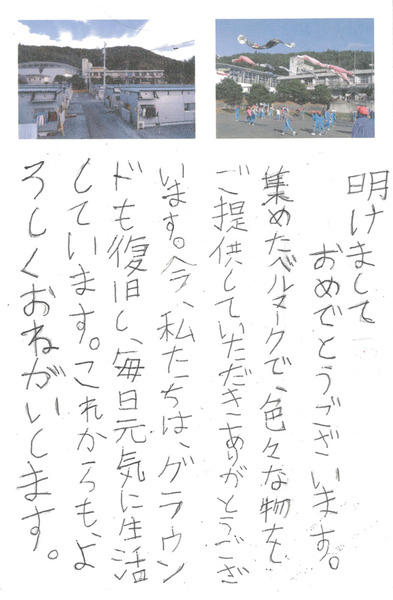 明けまして
おめでとうございます。
集めたベルマークで、色々な物を
ご提供していただきありがとうござ
います。今、私たちは、グラウン
ドも復旧し、毎日元気に生活
しています。これからも、よ
ろしくおねがいします。